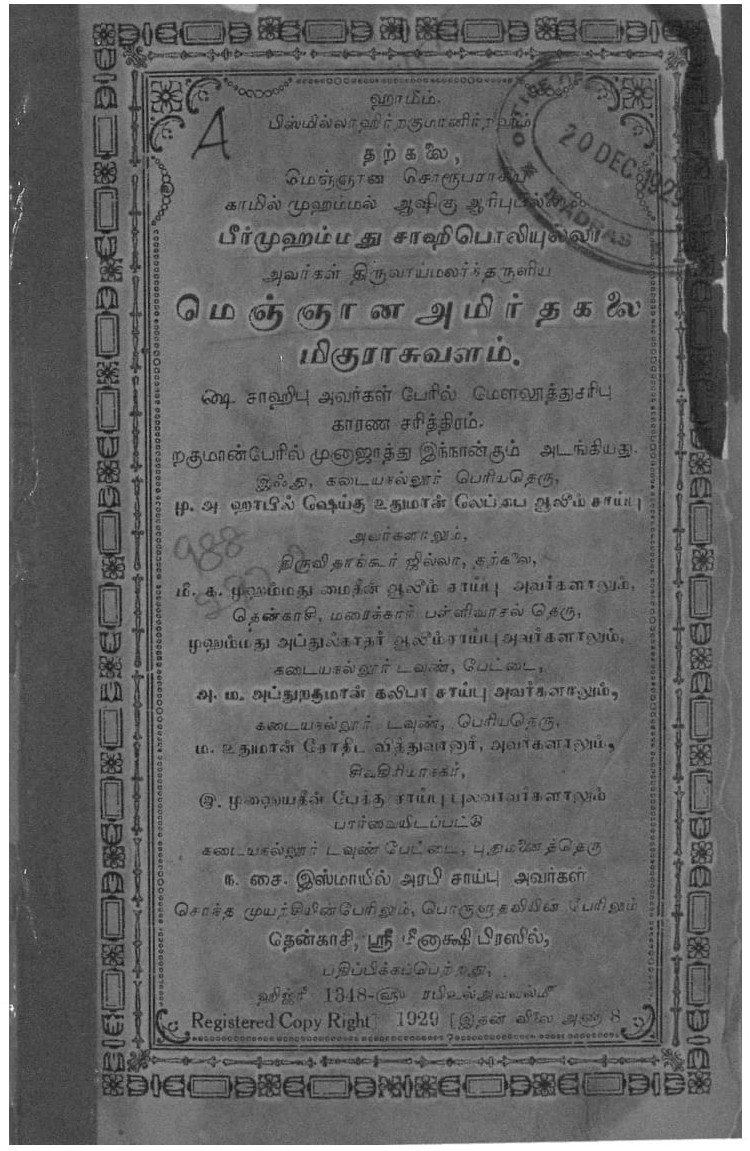 ஹாமீம்.
A
பிஸ்மில்லாஹிர்றகுமானிர்றஹீம்
OFFICE OF
20 DEC 1929
MADRAS
தற்கலை,
மெஞ்ஞான சொரூபராகிய
காமில் முஹம்மல் ஆஷிகு
பீர்முஹம்மது சாஹிபொலியுல்லா
அவர்கள் திருவாய்மலர்ந்தருளிய
மெஞ்ஞானஅமிர்தகலை
மிகுராசுவளம்.
௸ சாஹிபு அவர்கள் பேரில் மௌலூத்துசரிபு
காரண சரித்திரம்.
றகுமான்பேரில் முனாஜாத்து இந்நான்கும் அடங்கியது.
இஃது, கடையநல்லூர் பெரியதெரு,
மு. அ. ஹாபில் ஷெய்கு உதுமான் லேப்பை ஆலிம் சாய்பு
அவர்களாலும்,
988
திருவிதாங்கூர் ஜில்லா, தற்கலை,
மீ. க. முஹம்மது மைதீன் ஆலிம் சாய்பு அவர்களாலும்,
தென்காசி, மரைக்கார் பள்ளிவாசல் தெரு,
முஹம்மது அப்துல்காதர் ஆலிம்சாய்பு அவர்களாலும்,
கடையநல்லூர் டவுண், பேட்டை,
அ. ம. அப்துறகுமான் கலிபா சாய்பு அவர்களாலும்,
கடையநல்லூர் டவுண், பெரியதெரு,
ம. உதுமான் சோதிட வித்துவானூர், அவர்களாலும்,
இ. முஹையதீன் பேத்த சாய்பு புலவரவர்களாலும்
பார்வையிடப்பட்டு
கடையநல்லூர் டவுண் பேட்டை, புதுமனைத்தெரு
ந. சை. இஸ்மாயில் அரபி சாய்பு அவர்கள்
சொந்த முயற்சியின்பேரிலும், பொருளுதவியின் பேரிலும்
தென்காசி, ஸ்ரீ மீனாக்ஷிபிரஸில்,
பதிப்பிக்கப்பெற்றது,
ஹிஜ்ரீ 1348-௵ ரபிஉல்அவவல்௴
Registered Copy Right] 1929 [இதன் விலை அணா 8